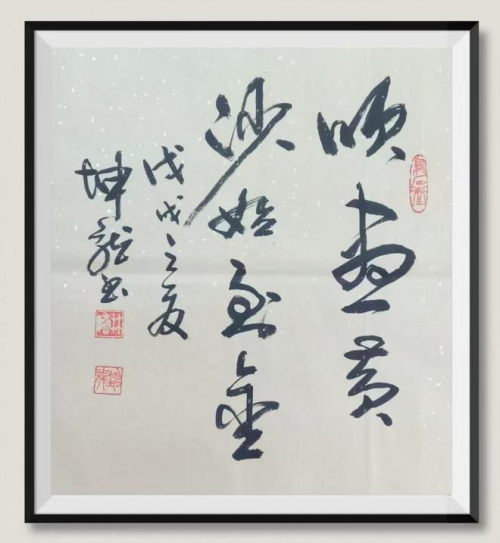 吹盡黄
沙始到金
戊戌之夏
坤龍书